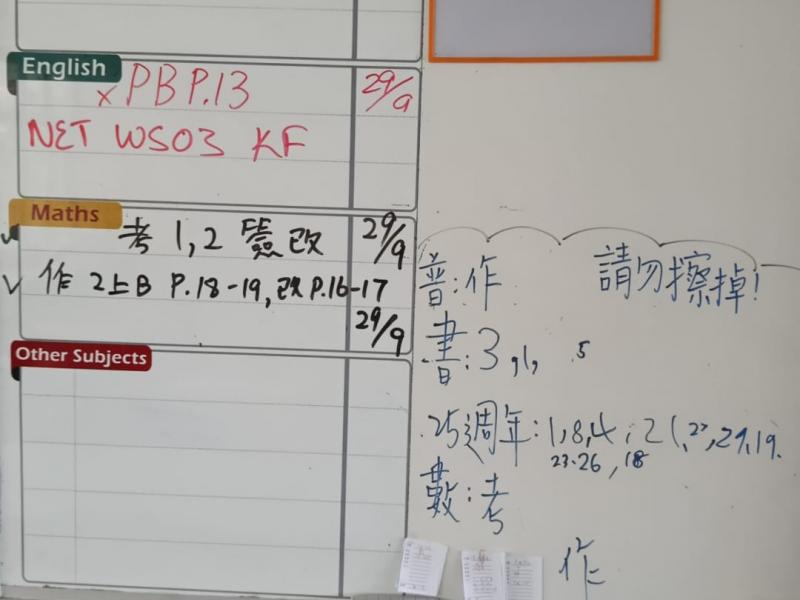 English
×PB P.13 29/9
NET WS03 KF
Maths
考 1,2 簽改 29/9
✓ 作 2上B P.18-19,改P.16-17
29/9
Other Subjects
請勿擦掉!
普:作
書:3,1, 5
25週年:1,8,4;21,27,29,19.
23.26,18
數:考
作